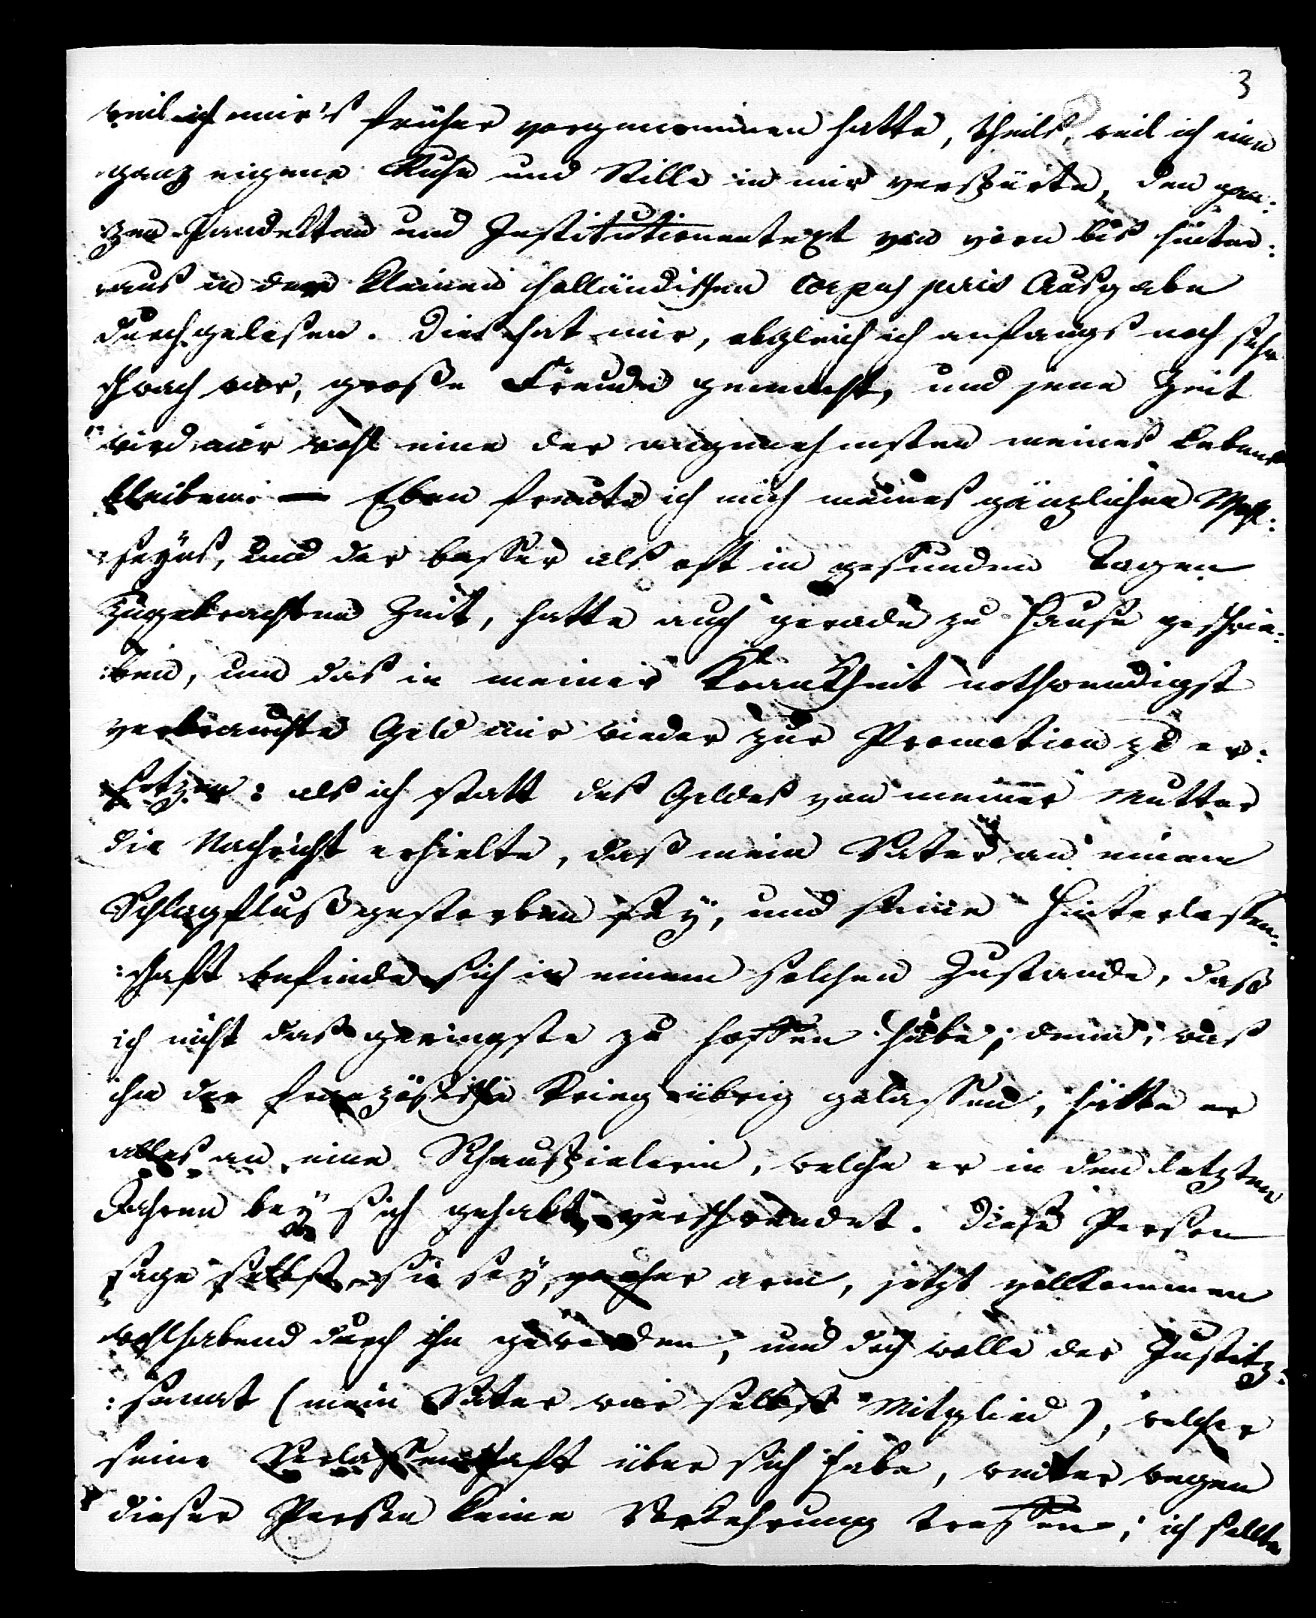 3
weil ich mir's früher vorgenommen hatte, theils, weil ich eine
ganz eigene Ruhe und Stille in mir verspürte, den gan:
zen Pandekten und Institutionentext von vorn bis hinten:
aus in der kleinen holländischen Corpus juris Ausgabe
durchgelesen. Dies hat mir, obgleich ich anfangs noch sehr
schwach war, große Freude gemacht, und jene Zeit
wird mir wohl eine der angenehmsten meines Lebens
bleiben. — Eben freute ich mich meines gänzlichen Wohl:
:seyns, und der besser als oft in gesunden Tagen
zugebrachten Zeit, hatte auch gerade zu Hause geschrie:
:ben, um das in meiner Krankheit nothwendigst
verbrauchte Geld mir wieder zur Promotion zu er:
:setzen: als ich statt des Geldes von meiner Mutter
die Nachricht erhielte, daß mein Vater an einem
Schlagfluß gestorben sey, und seine Hinterlassen:
:schaft befinde sich in einem solchen Zustande, daß
ich nicht das geringste zu hoffen habe; denn, was
ihm der französische Krieg übrig gelassen, hätte er
alles an eine Schauspielerin, welche er in den letzten
Jahren bey sich gehabt, verschwendet. Diese Person
sage selbst, sie sey, vorher arm, jetzt vollkommen
wohlhabend durch ihn geworden, und doch wolle der Justitz:
:senat (mein Vater war selbst Mitglied), welcher
seine Verlassenschaft über sich habe, weiter wegen
dieser Person keine Vorkehrung treffen; ich sollte